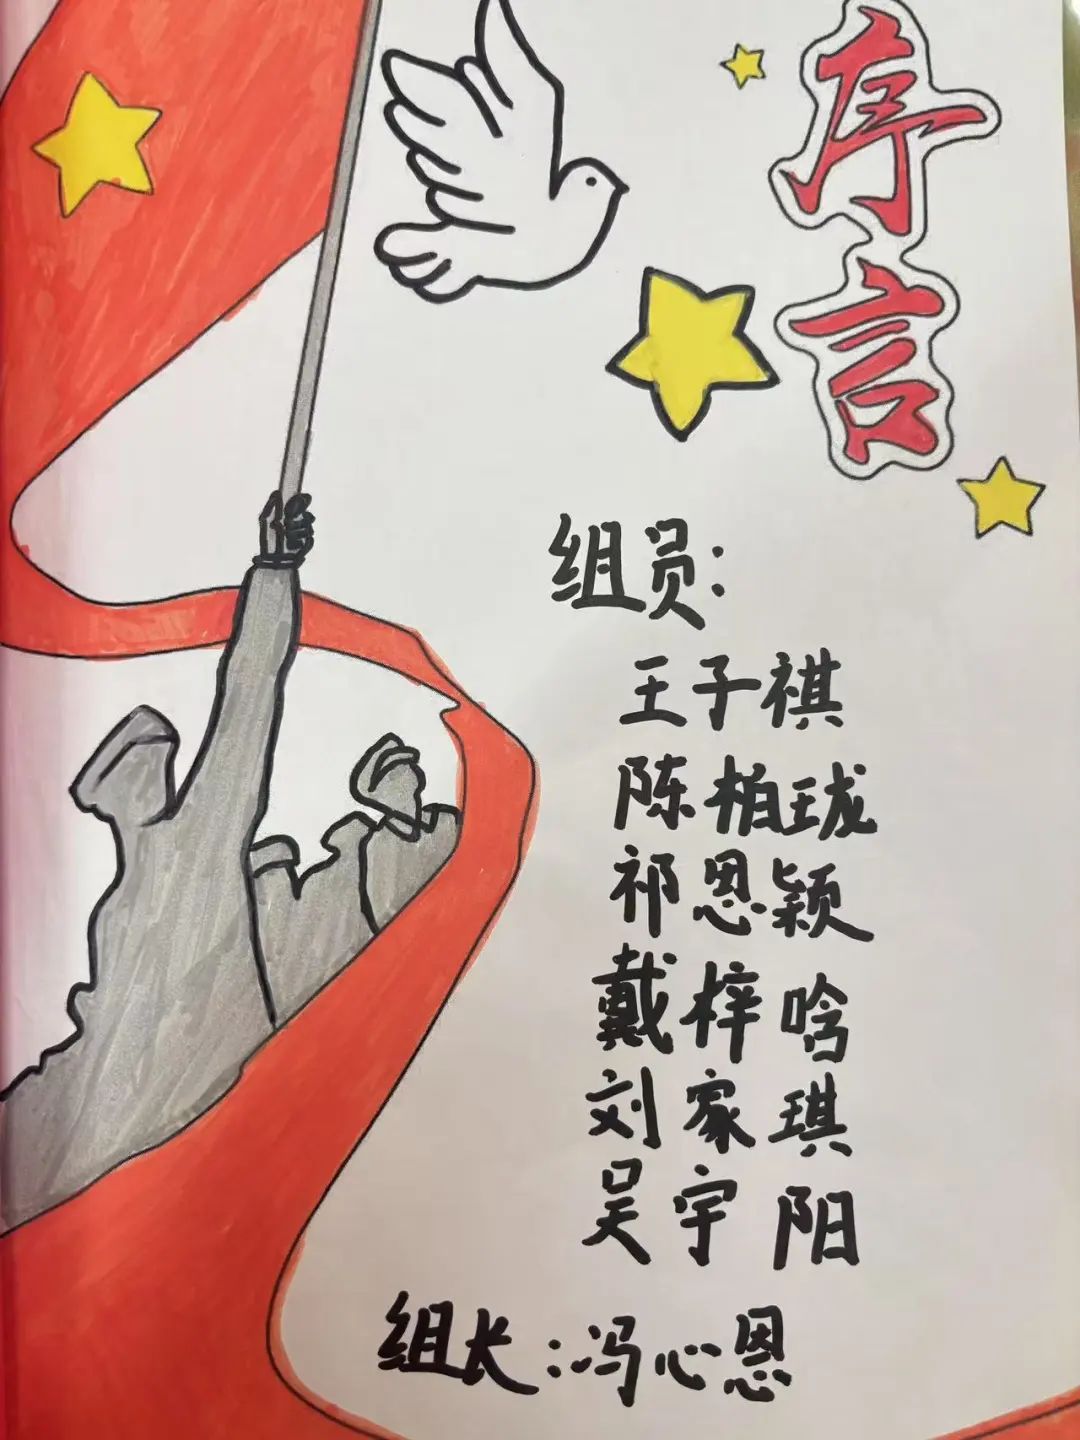 序言
组员：
王子祺
陈柏珑
祁恩颖
戴梓晗
刘家琪
吴宇阳
组长：冯心恩